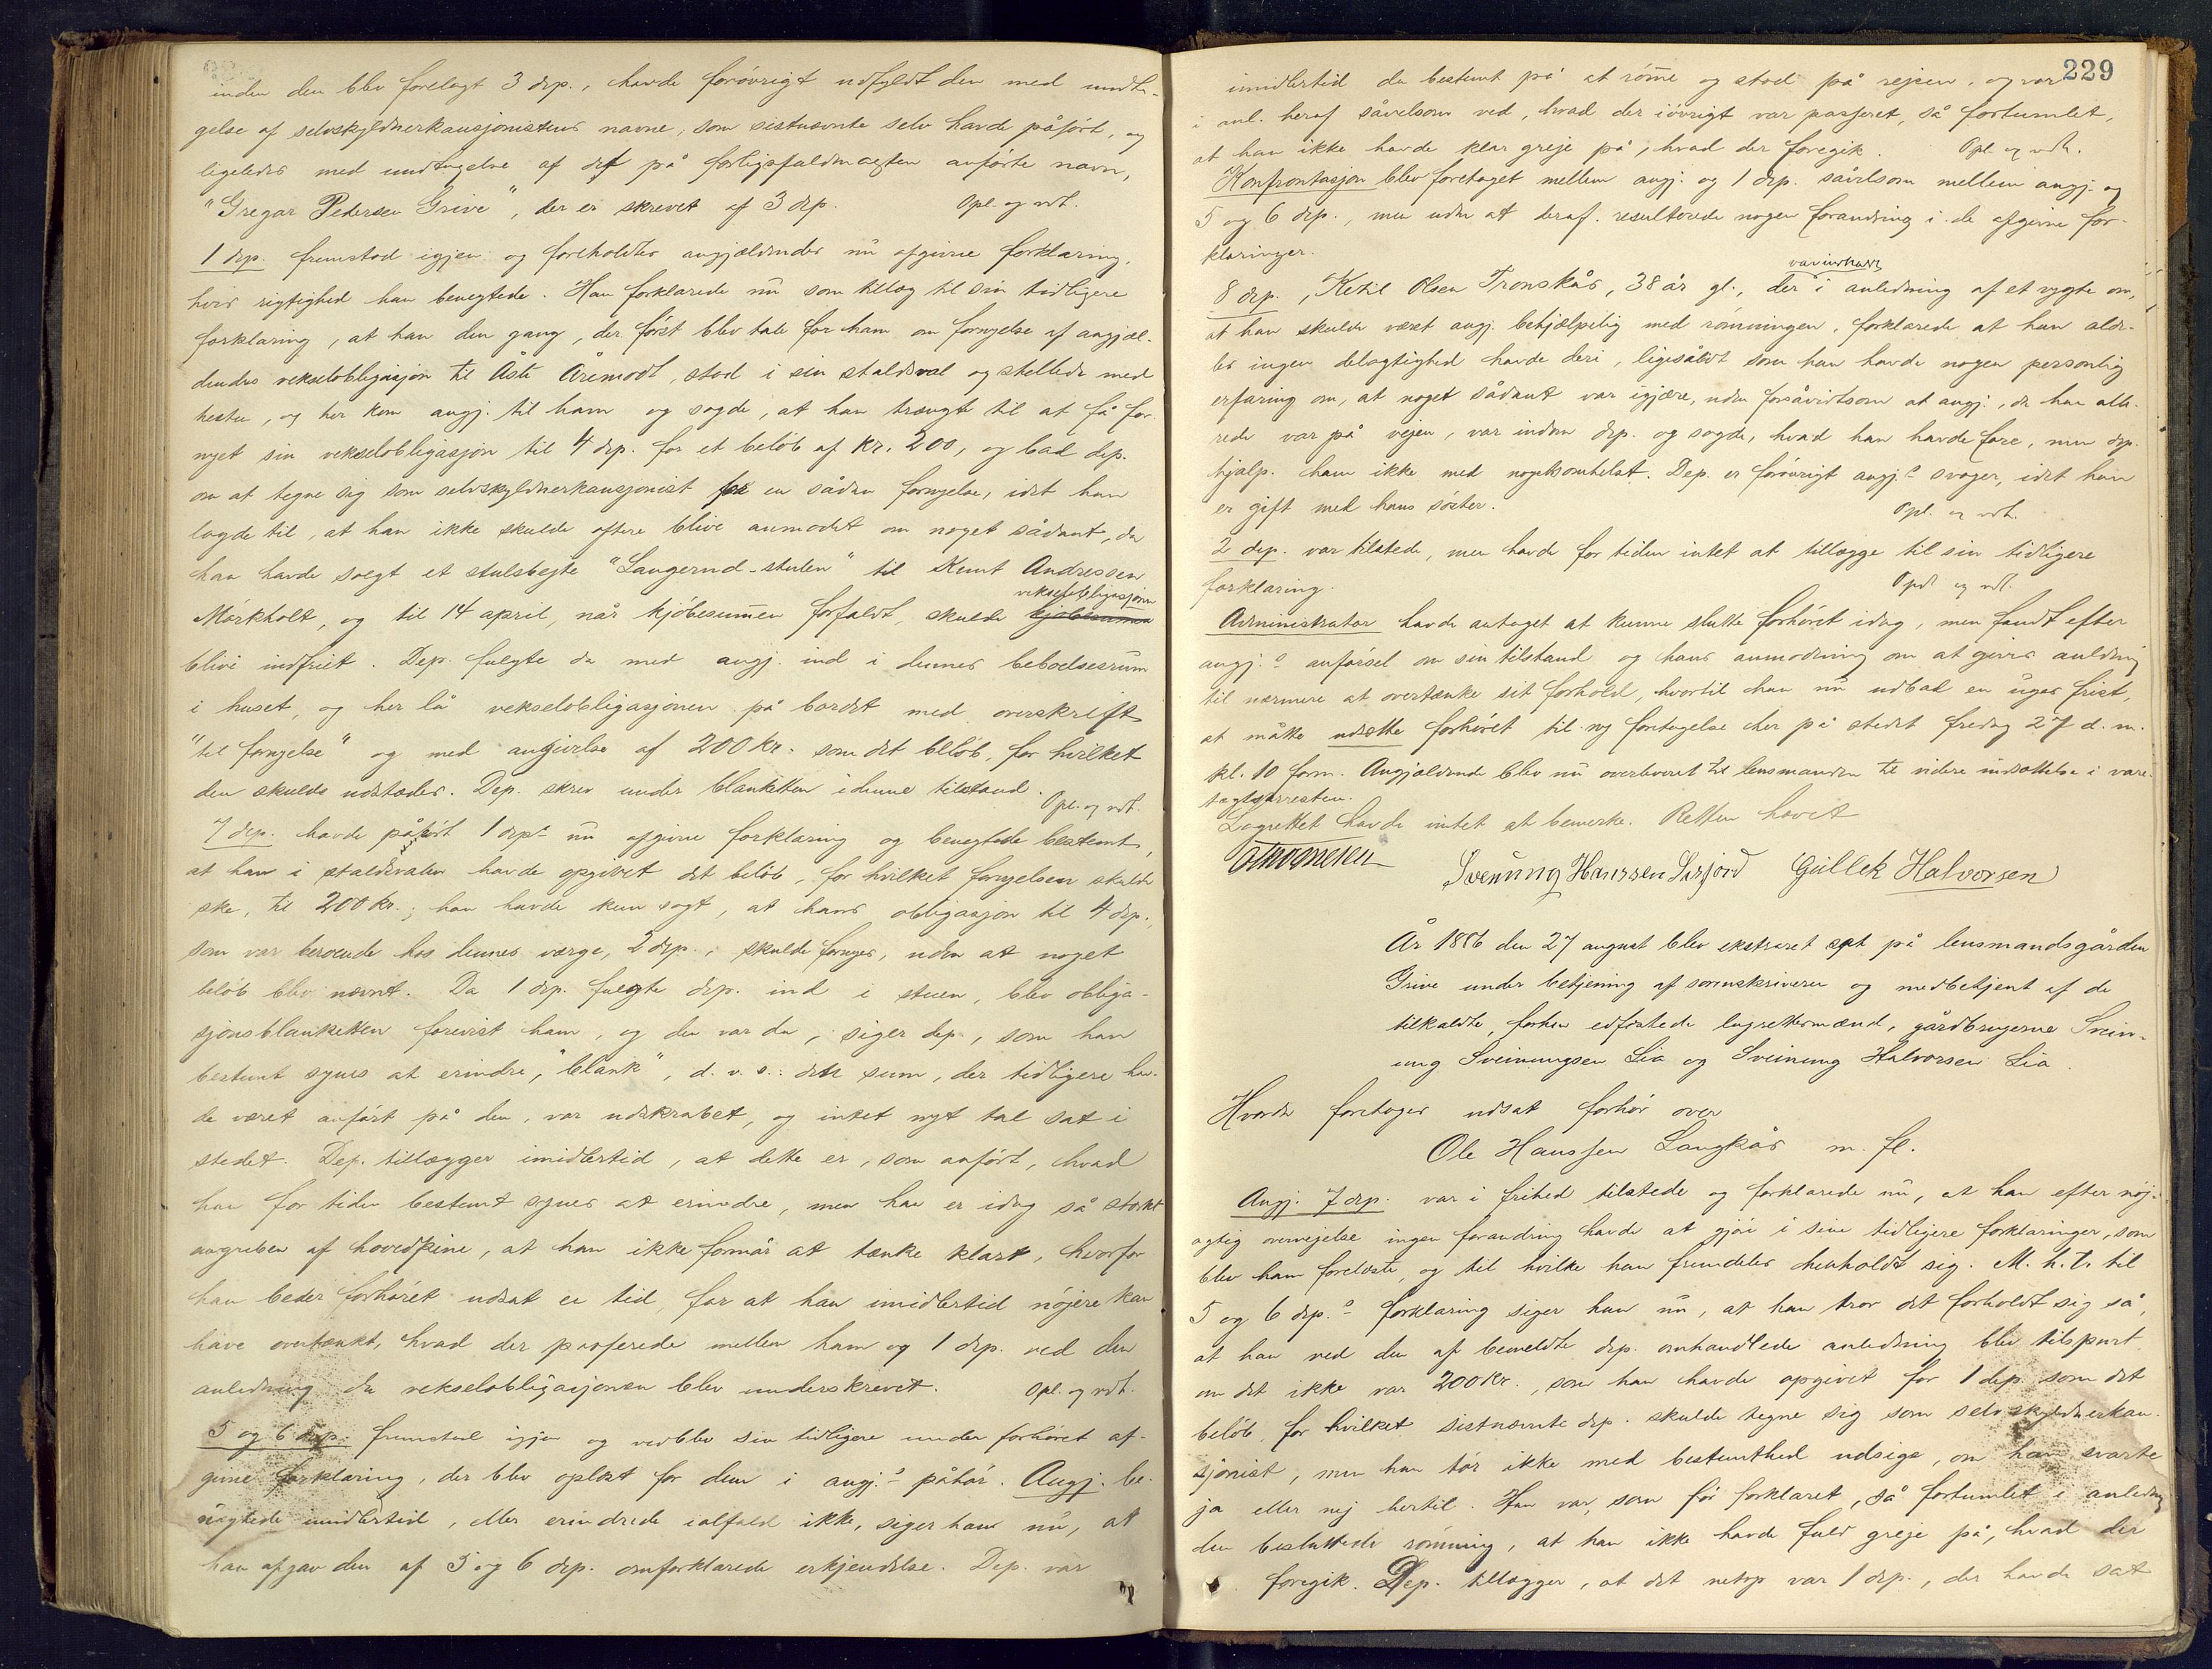 inden den blev forelagt 3 dep., havde forøvrigt udfyldt den med undta-
gelse af selvskyldnerkausjonistens navne, som sistnævnte selv havde påført, og
ligeledes med undtagelse af det på forligsfuldmagten anførte navn,
"Gregar Pedersen Grive", der er skrevet af 3 dep. Opl. og vdt.
1 dep. fremstod igjen og foreholdtes angjældendes nu afgivne forklaring,
hvis rigtighed han benegtede. Han forklarede nu som tillæg til sin tidligere
forklaring, at han den gang, der først blev tale for ham om fornyelse af angjæl-
dendes vekselobligasjon til Åste Åremodt, stod i sin staldsval og stellede med
hesten, og her kom angj. til ham og sagde, at han trængte til at få for-
nyet sin vekselobligasjon til 4 dep. for et beløb af kr. 200, og bad dep.
om at tegne sig som selvskyldnerkausjonist for en sådan fornyelse, idet han
lagde til, at han ikke skulde oftere blive anmodet om noget sådant, da
han havde solgt et stulsbeite "Langerud-stulen" til Knut Andressen
vekselobligasjonen
Mørkholt, og til 14 april, når kjøbesummen forfaldt, skulde kjøbesummen
blive indfriet. Dep. fulgte da med angj. ind i dennes beboelsesrum
i huset, og her lå vekselobligasjonen på bordet med overskrift
"til fornyelse" og med angivelse af 200 kr. som det beløb, for hvilket
den skulde udstædes. Dep. skrev under blanketten i denne tilstand. Opl. og vdt.
7 dep. havde påhørt 1 dep.s nu afgivne forklaring og benegtede bestemt,
at han i staldsvalen havde opgivet det beløb, for hvilket fornyelsen skulde
ske, til 200 kr.; han havde kun sagt, at hans obligasjon til 4 dep.,
som var beroende hos dennes værge, 2 dep., skulde fornyes, uden at noget
beløb blev nævnt. Da 1 dep. fulgte dep. ind i stuen, blev obliga-
sjonsblanketten forevist ham, og den var da, siger dep., som han
bestemt synes at erindre, "blank", d. v. s.: den sum, der tidligere hav-
de været anført på den, var udskrabet, og intet nyt tal sat i
stedet. Dep. tillægger imidlertid, at dette er, som anført, hvad
han for tiden bestemt synes at erindre, men han er idag så stærkt
angreben af hovedpine, at han ikke formår at tænke klart, hvorfor
han beder forhøret udsat en tid, for at han imidlertid nøjere kan
have overtænkt, hvad der passerede mellem ham og 1 dep. ved den
anledning da vekselobligasjonen blev underskrevet. Opl. og vdt.
5 og 6 dep. fremstod igjen og vedblev sin tidligere under forhøret af-
givne forklaring, der blev oplæst for dem i angj.s påhør. Angj. be-
nægtede imidlertid, eller erindrede ialfald ikke, siger han nu, at
han afgav den af 5 og 6 dep. omforklarede erkjendelse. Dep. var
229
imidlertid da bestemt på at rømme og stod på rejsen, og var
i anl. heraf såvelsom ved, hvad der iøvrigt var passeret, så fortumlet,
at han ikke havde klar greje på, hvad der foregik. Opl. og vdt.
Konfrontasjon blev foretaget mellem angj. og 1 dep. såvelsom mellem angj. og
5 og 6 dep., men uden at deraf resulterede nogen forandring i de afgivne for-
klaringer.
8 dep., Ketil Olsen Tronskås, 38 år gl., der i anledning af et rygte om,
at han skulde været angj. behjælpelig med rømningen, forklarede at han alde-
les ingen delagtighed havde deri, ligesålidt som han havde nogen personlig
erfaring om, at noget sådant var igjære, uden forsåvidtsom at angj., da han alle-
rede var på vejen, var indom dep. og sagde, hvad han havde fore, men dep.
hjalp ham ikke med nogetsomhelst. Dep. er forøvrigt angj.s svoger, idet han
er gift med hans søster. Opl. og vdt.
2 dep. var tilstede, men havde for tiden intet at tillægge til sin tidligere
forklaring. Opl. og vdt.
Administrator havde antaget at kunne slutte forhøret idag, men fandt efter
angj.s anførsel om sin tilstand og hans anmodning om at gives anledning
til nærmere at overtænke sit forhold, hvortil han nu udbad en uges frist,
at måtte udsætte forhøret til ny foretagelse her på stedet fredag 27 d. m.
kl. 10 form. Angjældende blev nu overleveret til lensmanden til videre indsættelse i vare-
tægtsarresten.
Lagrettet havde intet at bemerke. Retten hævet
Svenung Hanssen Sisjord Gullek Halvorsen
År 1886 den 27 august blev ekstraret sat på lensmandsgården
Grive under betjening af sorenskriveren og medbetjent af de
tilkaldte, forhen edfæstede lagrettemænd, gårdbrugerne Svein-
ung Sveinungsen Lia og Sveinung Halvorsen Lia.
Hvorda foretoges udsat forhør over
Ole Hanssen Langkås m. fl.
Angj. 7 dep. var i frihed tilstede og forklarede nu, at han efter nøj-
agtig overvejelse ingen forandring havde at gjøre i sine tidligere forklaringer, som
blev ham forelæste, og til hvilke han fremdeles henholdt sig. M. h. t. til
5 og 6 dep.s forklaring siger han nu, at han tror det forholdt sig så,
at han ved den af bemeldte dep. omhandlede anledning blev tilspurt
om det ikke var 200 kr., som han havde opgivet for 1 dep. som det
beløb, for hvilket sistnævnte dep. skulde tegne sig som selvskyldnerkau-
sjonist, men han tør ikke med bestemthed udsige, om han svarte
ja eller nej hertil. Han var, som før forklaret, så fortumlet i anledning
den besluttede rømning, at han ikke havde fuld greje på, hvad der
foregik. Dep. tillægger, at det netop var 1 dep., der havde sat